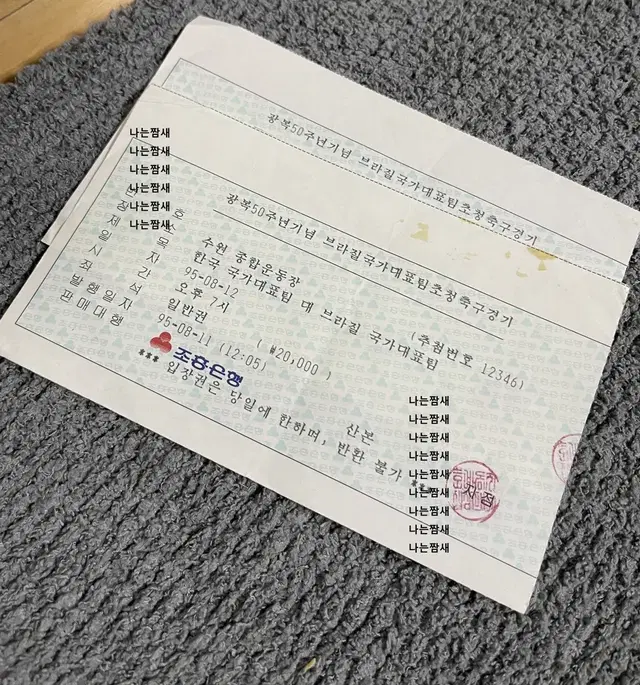 광복50주년기념 브라질국가대표팀초청축구경기
나는짬새
나는짬새
나는짬새
나는짬새
나는짬새
나는짬새
광복50주년기념 브라질국가대표팀초청축구경기
호 (추첨번호 12346)
장 소 수원 종합운동장
제 목 한국 국가대표팀 대 브라질 국가대표팀
일 자 95-08-12
시 간 오후 7시
좌 석 일반권 ( ₩20,000 )
발행일자 95-08-11 (12:05)
판매대행 조흥은행 산본 지점
*** 입장권은 당일에 한하며, 반환 불가 ***
나는짬새
나는짬새
나는짬새
나는짬새
나는짬새
나는짬새
나는짬새
나는짬새
나는짬새